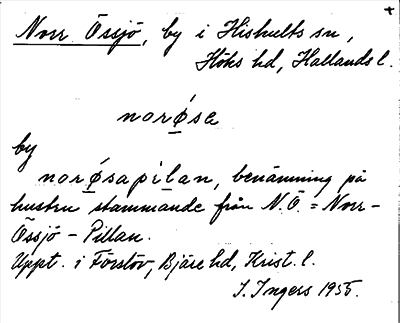 Norr Össjö, by i Hishults sn,
Höks hd, Hallands l.
norø̱se
by
norø̱sapi̱lan, benämning på
hustru stammande från N.Ö. = Norr-
Össjö - Pillan.
Uppt. i Förslöv, Bjäre hd, Krist. l.
I. Ingers 1955.